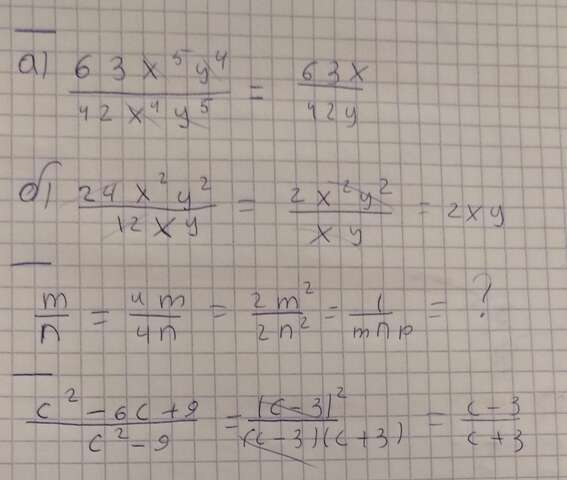 а) 63x⁵y⁴ / 42x⁴y⁵ = 63x / 42y
б) 24x²y² / 12xy = 2x²y² / xy = 2xy
m/n = 4m/4n = 2m²/2n² = 1/mnp = ?
c² - 6c + 9 / c² - 9 = (c - 3)² / (c - 3)(c + 3) = c - 3 / c + 3